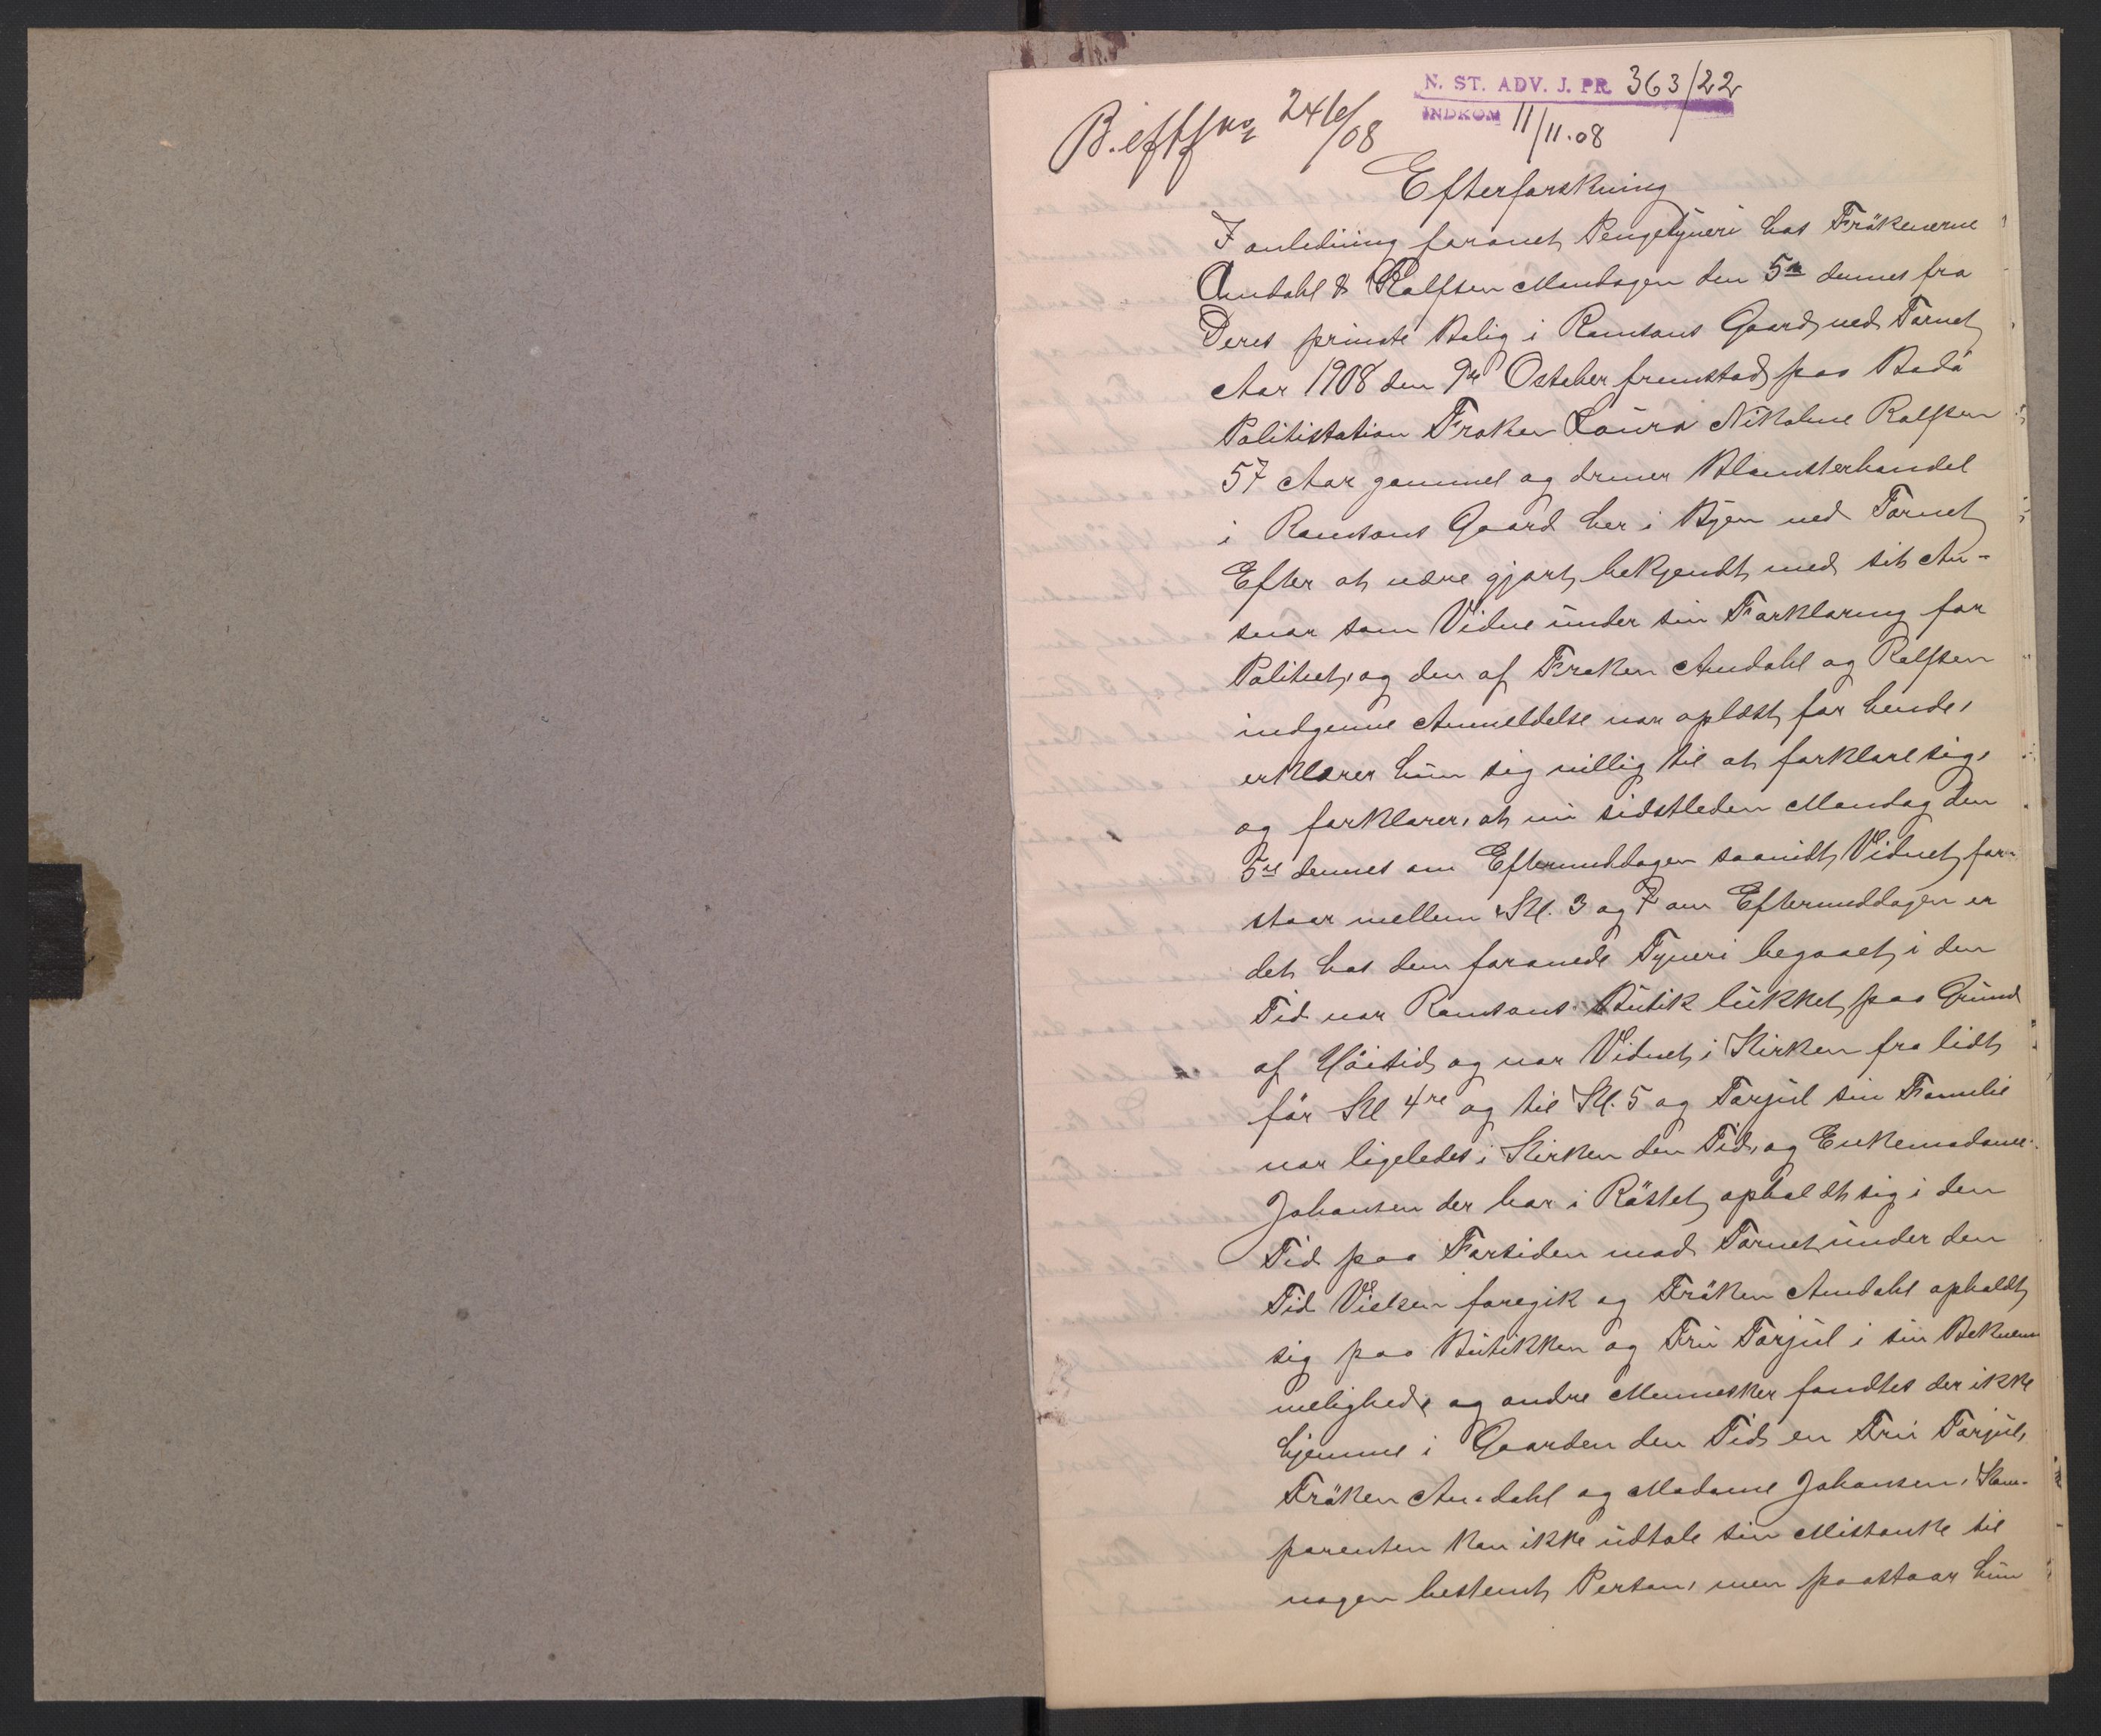 N. ST. ADV. J. PR. 363/22
INDKOM 11/11.08
B. 246/08
Efterforskning
I anledning forøvet Pengetyveri hos Frökenerne
Amdahl & Rolfsen Mandagen den 5te dennes fra
Deres private Bolig i Ramsons Gaard ved Torvet
Aar 1908 den 9de October fremstod paa Bodö
Politistation Frøken Laura Nikoline Rolfsen
57 Aar gammel og driver Blomsterhandel
i Ramsons Gaard her i Byen ved Torvet
Efter at være gjort bekjendt med sit An-
svar som Vidne under sin Forklaring for
Politiet, og den af Frøken Amdahl og Rolfsen
indgivne Anmeldelse var oplæst for hende,
erklærer hun sig villig til at forklare sig,
og forklarer, at nu sidstleden Mandag den
5te dennes om Eftermiddagen saavidt Vidnet for-
staar mellem Kl. 3 og 7 om Eftermiddagen er
det hos dem forøvede Tyveri begaaet, i den
Tid var Ramsons Butik lukket paa Grund
af Höitid og var Vidnet i Kirken fra lidt
för Kl 4re og til Kl. 5 og Torjul sin Familie
var ligeledes i Kirken den Tid, og Enkemadame
Johansen der bor i Röstet opholdt sig i den
Tid paa Forsiden mod Torvet under den
Tid Vielsen foregik og Fröken Amdahl opholdt
sig paa Butikken og Fru Torjul i sin Bekvem
melighed, og andre Mennesker fandtes der ikke
hjemme i Gaarden den Tid en Fru Torjul,
Fröken Amdahl og Madame Johansen, Kom-
parenten kan ikke udtale sin Mistanke til
nogen bestemt Person, men paastaar hun